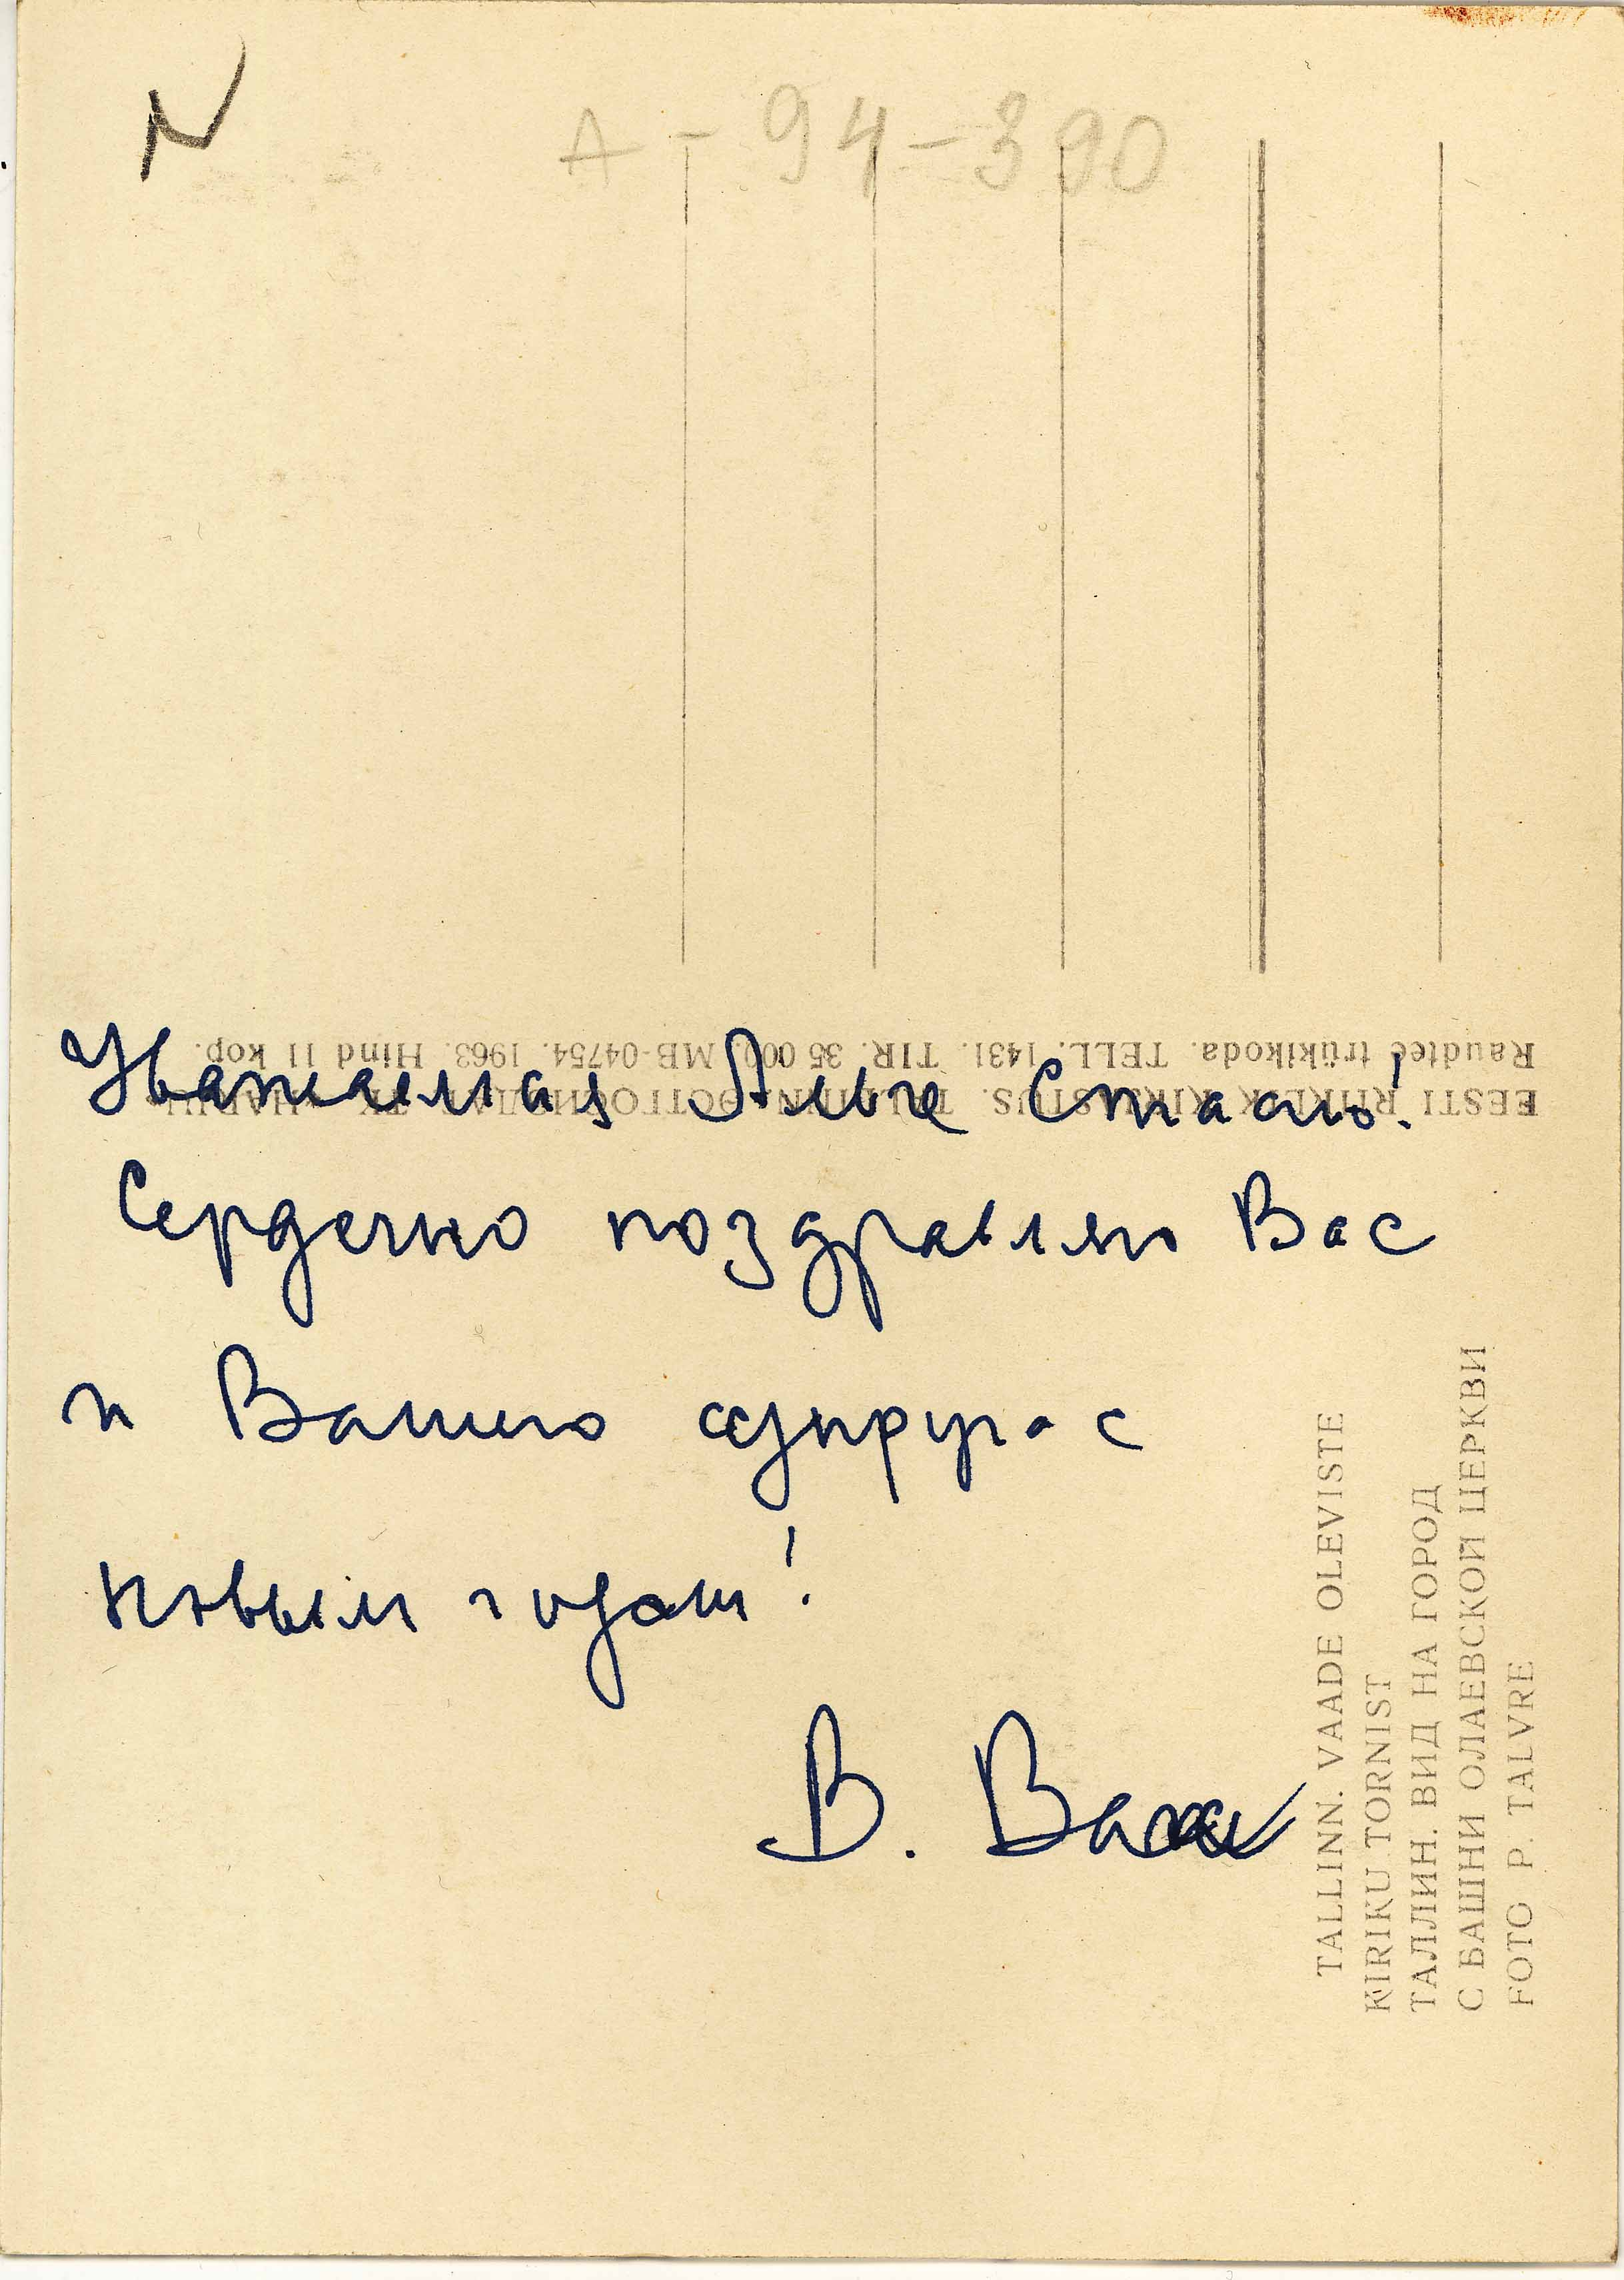 N
А - 94-390
Raudtee trükikoda. TELL. 1431. TIR. 35 000. MB-04754. 1963. Hind 11 kop.
EESTI RIIKLIK KIRJASTUS. TALLINN
Уважаемая
Сердечно поздравляю Вас
и Вашего супруга с
новым годом!
В.
TALLINN. VAADE OLEVISTE
KIRIKU TORNIST
ТАЛЛИН. ВИД НА ГОРОД
С БАШНИ ОЛАЕВСКОЙ ЦЕРКВИ
FOTO P. TALVRE